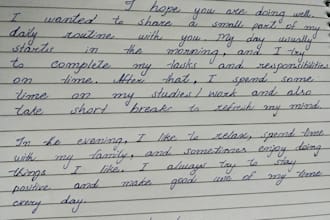 I hope you are doing well.
I wanted to share a small part of my
daily routine with you. My day usually
starts in the morning, and I try
to complete my tasks and responsibilities
on time. After that, I spend some
time on my studies/work and also
take short break to refresh my mind.
In the evening, I like to relax, spend time
with my family, and sometimes enjoy doing
things I like. I always try to stay
positive and make good use of my time
every day.